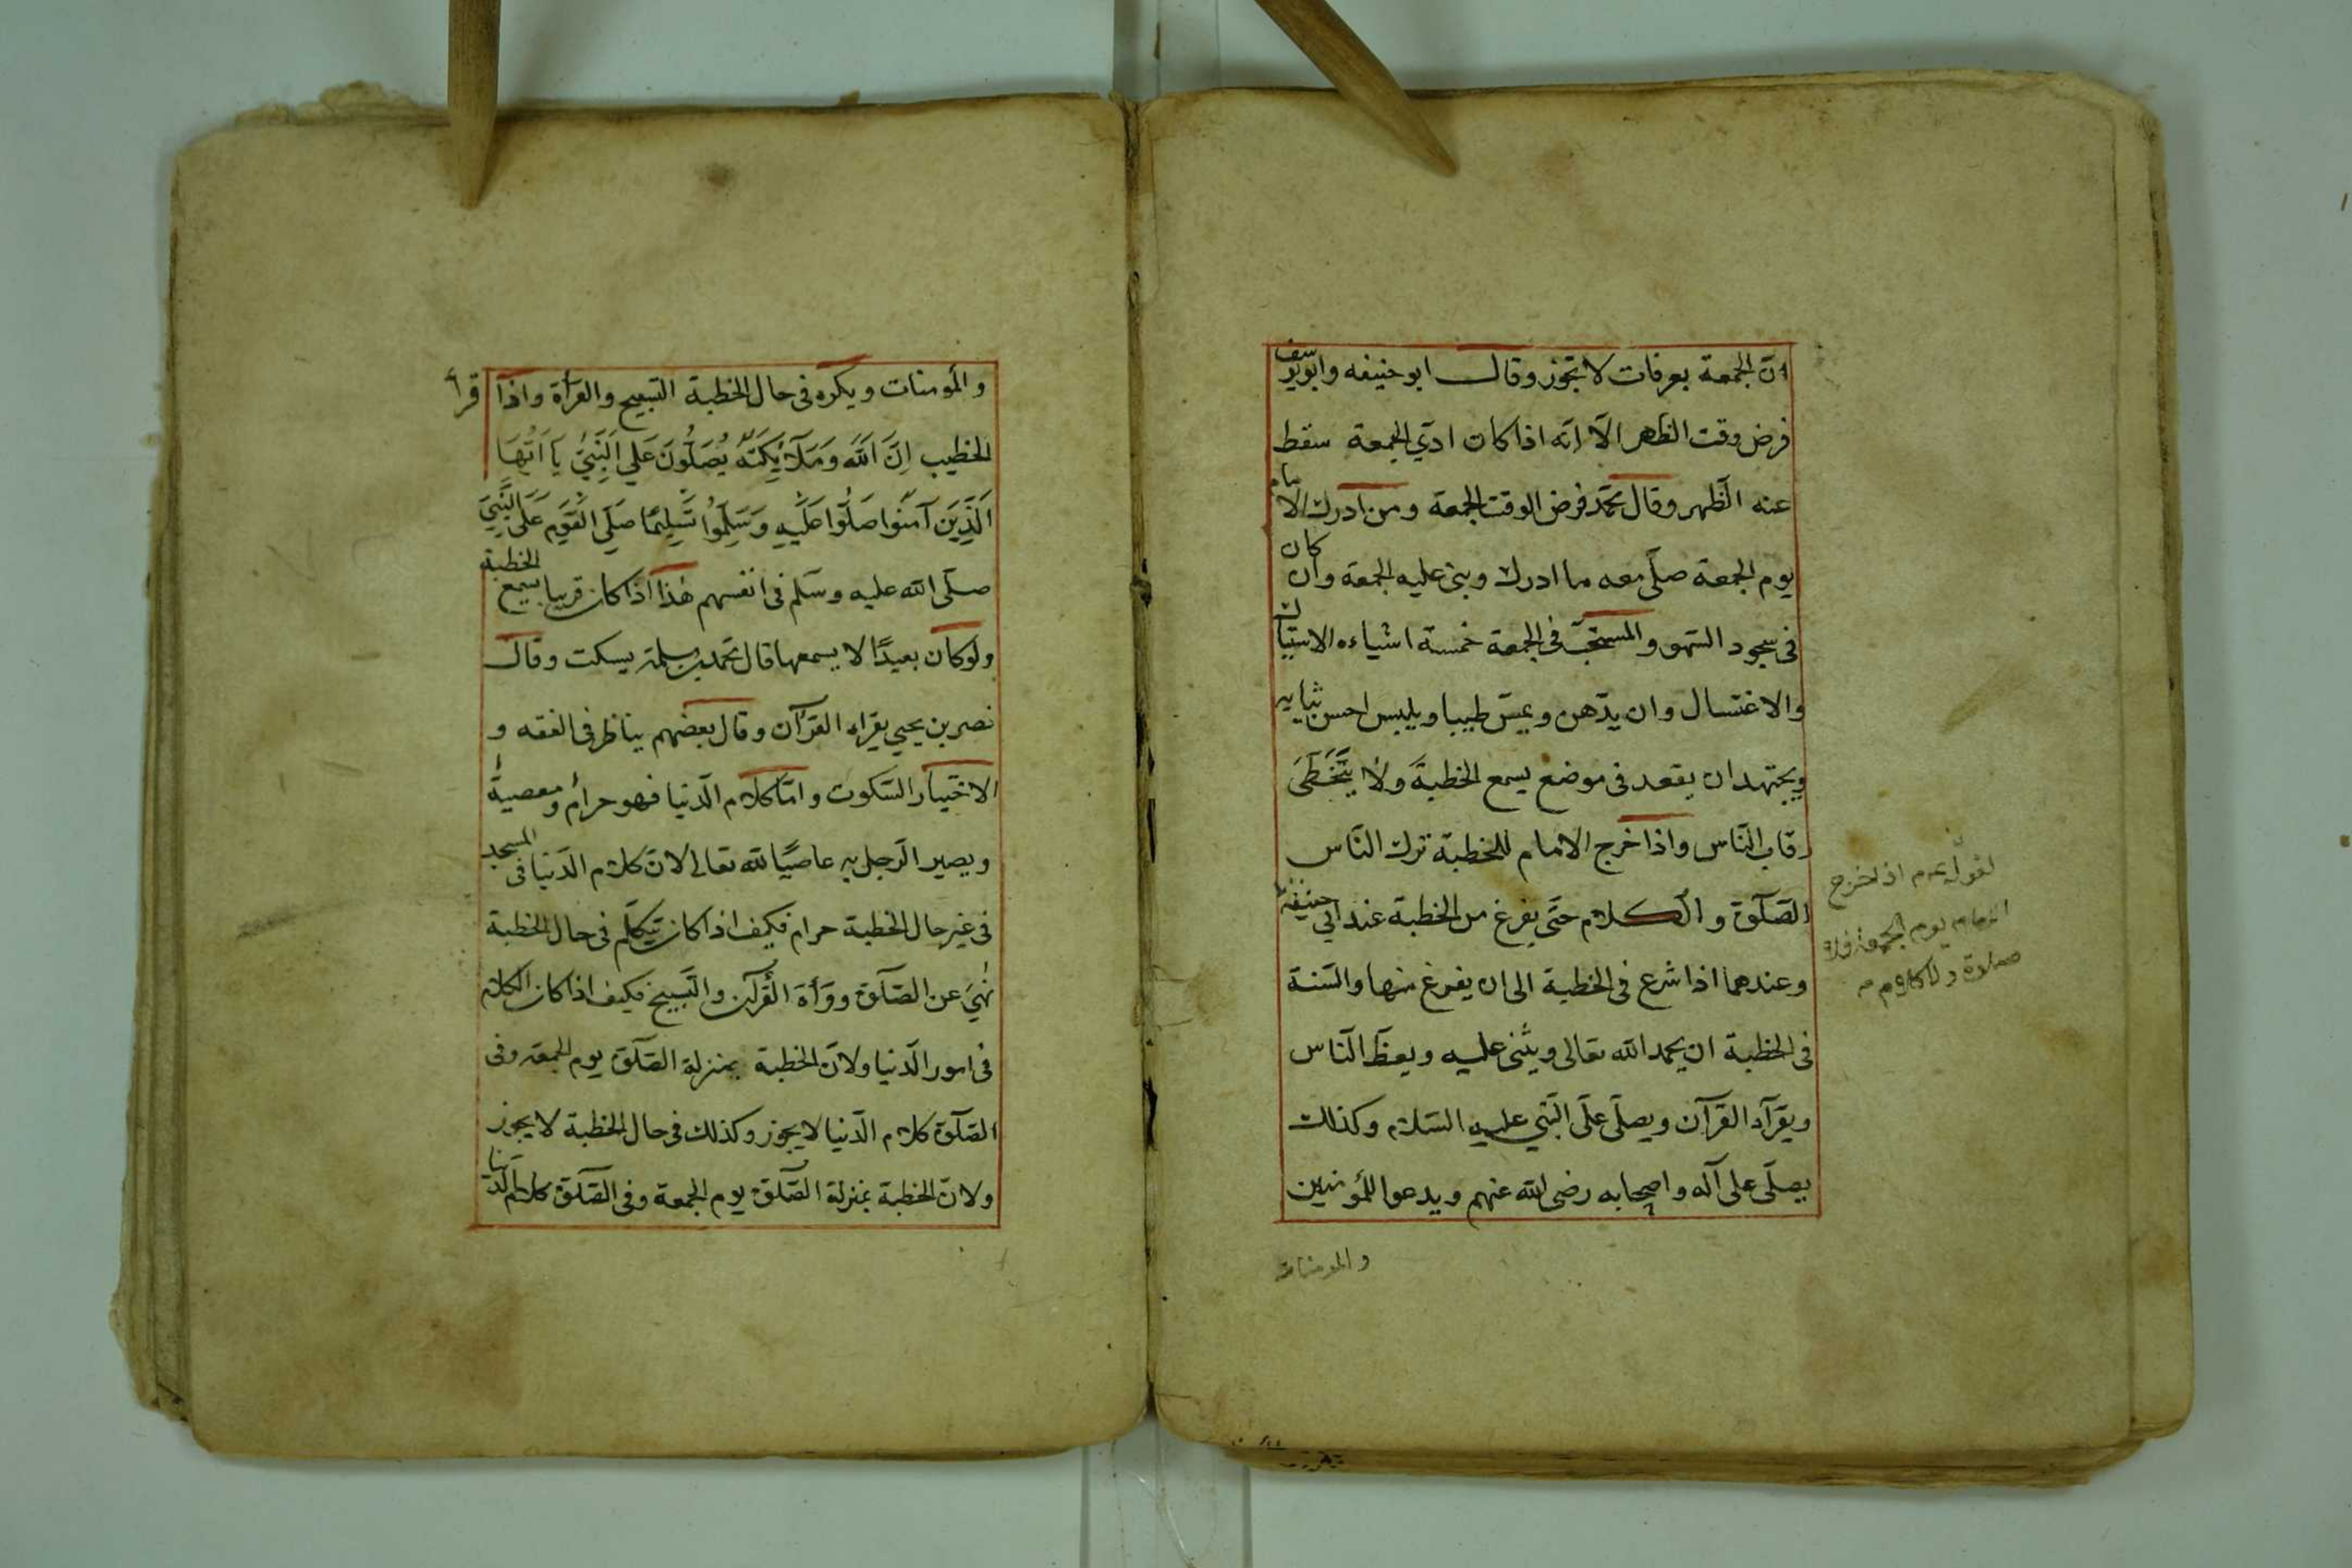 ان الجمعة بعرفات لا تجوز وقال ابو حنيفه وابويوسف
فرض وقت الظهر الّا انّه اذا كان ادّي الجمعة سقط
عنه الظّهر وقال محمّد فرض الوقت الجمعة ومن ادرك الامام
يوم الجمعة صلّى معه ما ادرك وبنى عليه الجمعة وان كان
فى سجود السّهو والمستحبّ فى الجمعة خمسة اشياءه الاستياك
والاغتسال وان يدّهن ويمسّ طيبا ويلبس احسن ثيابه
ويجتهد ان يقعد فى موضع يسمع الخطبة ولا يتخطّى
رقاب النّاس واذا خرج الامام للخطبة ترك النّاس
الصّلوة والكلام حتّى يفرغ من الخطبة عند ابي حنيفة
وعندهما اذا شرع فى الخطبة الى ان يفرغ منها والسّنة
فى الخطبة ان يحمد الله تعالى ويثنى عليه ويعظ النّاس
ويقرآء القرآن ويصلّى علَى النّبي عليه السّلام وكذلك
يصلّى على آله واصحابه رضى الله عنهم ويدعوا للمؤمنين
والمومنات
لقوله عم اذا خرج
الامام يوم الجمعة فلا
صلوة ولا كلام
والمؤمنات ويكره فى حال الخطبة التسبيح والقرأة واذا قرأ
الخطيب اِنَّ اَللّهَ وَمَلَآئِكَتَهُ يُصَلُّونَ عَلَي النَّبِيّ يَا اَيُّهَا
اَلَّذِينَ آمَنُوا صَلُّوا عَلَيهِ وَسَلِّمُوا تَسْلِيمًا صَلّى القَوم عَلَى النَّبِيّ
صلّى الله عليه وسلّم فى انفسهم هٰذا اذا كان قريبا يسمع الخطبة
ولو كان بعيدًا لا يسمعها قال محمّد بن سلمة يسكت وقال
نصر بن يحيى يقراء القرآن وقال بعضهم يناظر فى الفقه و
الاختيار السّكوت وامّا كلام الّدنيا فهو حرام ومعصية
ويصير الّرجل به عاصيًا لله تعالى لانّ كلام الّدنيا فى المسجد
فى غير حال الخطبة حرام فكيف اذا كان يتكلّم فى حال الخطبة
نهٰيَ عن الصّلوة وقرأة القرآن والتّسبيح فكيف اذا كان الكلام
فى امور الّدنيا ولانّ الخطبة بمنزلة الصّلوة يوم الجمعه وفى
الصّلوة كلام الّدنيا لا يجوز وكذلك فى حال الخطبة لا يجوز
ولانّ الخطبة بمنزلة الصّلوة يوم الجمعة وفى الصّلوة كلام الّدنيا